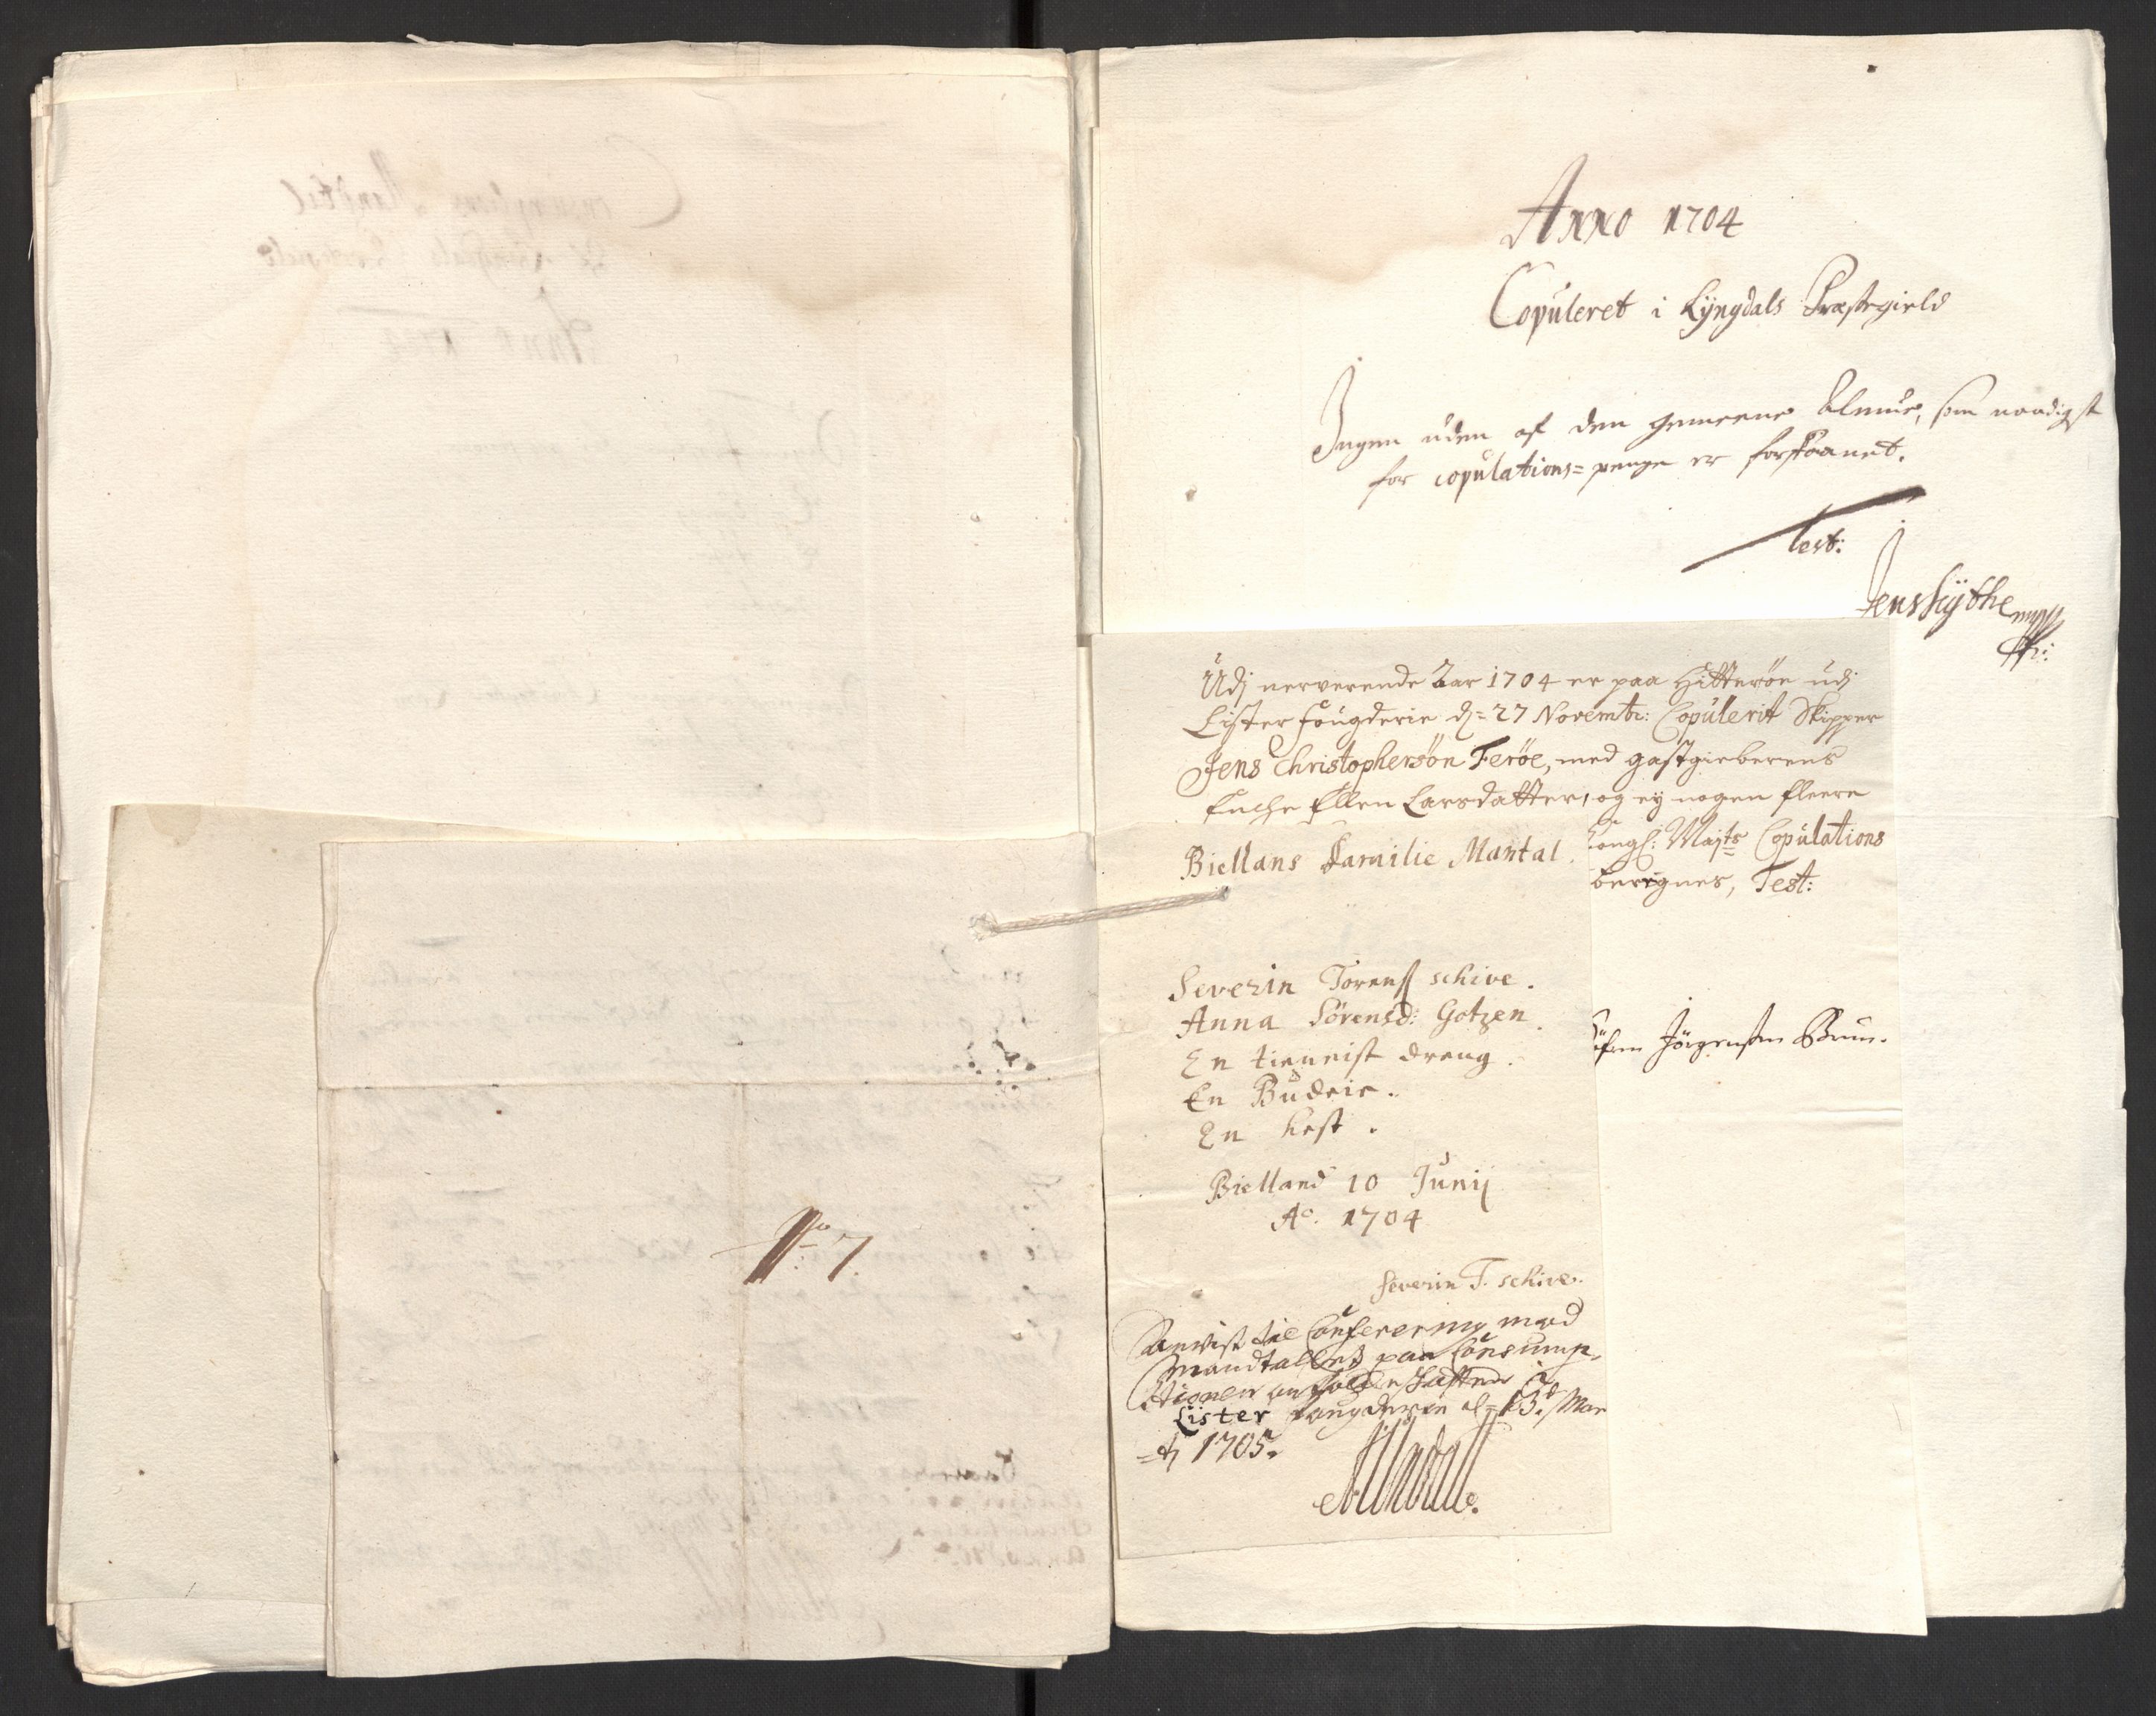 No 7
Anno 1704
Copuleret i Lyngdals Præstegield
Ingen uden af den gemeene Almue, som naadigst
for copulations=penge er forskaanet.
Test:
Jens Lÿthe mpp
Udj nerverende Aar 1704 er paa Hitterøe udj
Lister fougderie d= 27 Novembr: Copulerit Skipper
Jens Christophersøn Ferøe, med gastgieberens
Enche Ellen Larsdatter, og ej nogen fleere
Kongl: Majts Copulations
beregnes, Test:
Jørgensen Bruun.
Biellans Familie Mantal.
Severin Torenss schive.
Anna Sørensd: Gotzen.
En tienist dreng.
En Budeie.
En hest.
Bielland 10 Junij
Ao. 1704
Severin T. schive.
Anvist till Conferering med
Mandtallet paa Consump-
tionen og folcheskatten i
Lister fougderie d= 13d Mar
=tj 1705.